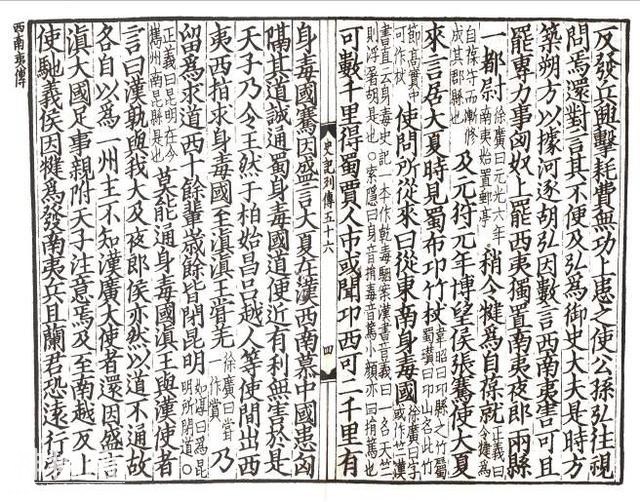 反發兵興擊耗費無功上患之使公孫弘往視
問焉還對言其不便及弘為御史大夫是時方
築朔方以據河逐胡弘因數言西南夷害可且
罷專力事匈奴上罷西夷獨置南夷夜郎兩縣
一都尉徐廣曰元光六年南夷始置郵亭稍令犍為自葆就正義曰令犍為
自葆守而漸修成其郡縣也及元狩元年博望侯張騫使大夏
來言居大夏時見蜀布卭竹杖韋昭曰卭縣之竹屬蜀瓚曰卭山名此竹
節高實中可作杖使問所從來曰從東南身毒國徐廣曰字或作竺漢
書直云身毒史記一本作乾毒駰案漢書音義曰一名天竺則浮屠胡是也○索隱曰身音捐毒音篤小顏亦曰捐篤也
可數千里得蜀賈人市或聞卭西可二千里有
史記列傳五十六
四
身毒國騫因盛言大夏在漢西南慕中國患匈
隔其道誠通蜀身毒國道便近有利無害於是
天子乃令王然于柏始昌呂越人等使間出西
夷西指求身毒國至滇滇王甞羌徐廣曰甞一作賞乃
留為求道西十餘輩歲餘皆閉昆明如淳曰為昆明所閉道○
正義曰昆明在今嶲州南昆縣是也莫能通身毒國滇王與漢使者
言曰漢孰與我大及夜郎侯亦然以道不通故
各自以為一州主不知漢廣大使者還因盛言
滇大國足事親附天子注意焉及至南越反上
使馳義侯因犍為發南夷兵且蘭君恐遠行旁
西南夷傳